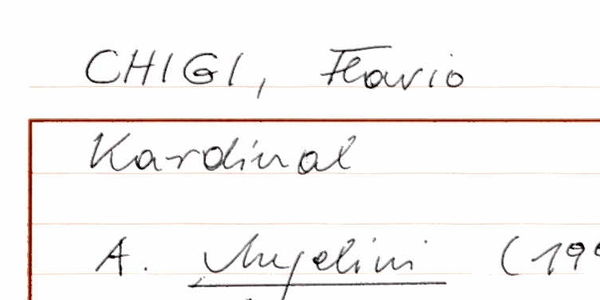 CHIGI, Flavio
Kardinal
A. Angelini (199